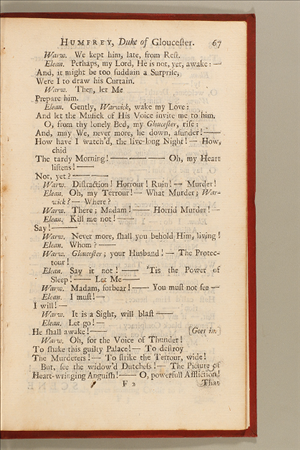 HUMFREY, Duke of Gloucester. 67
Warw. We kept him, late, from Rest.
Elean. Perhaps, my Lord, He is not, yet, awake: —
And, it might be too suddain a Surprise,
Were I to draw his Curtain.
Warw. Then, let Me
Prepare him.
Elean. Gently, Warwick, wake my Love:
And let the Musick of His Voice invite me to him.
O, from thy lonely Bed, my Gloucester, rise:
And, may We, never more, lie down, asunder! —
How have I watch'd, the live-long Night! — How,
chid
The tardy Morning! — — — Oh, my Heart
listens! —
Not, yet? — — —
Warw. Distraction! Horrour! Ruin! — Murder!
Elean. Oh, my Terrour! — What Murder; War-
wick? — Where?
Warw. There; Madam! — Horrid Murder! —
Elean. Kill me not! —
Say! —
Warw. Never more, shall you behold Him, living!
Elean. Whom? —
Warw. Gloucester; your Husband! — The Protec-
tour!
Elean. Say it not! — 'Tis the Power of
Sleep! — Let Me —
Warw. Madam, forbear! — You must not see —
Elean. I must! —
I will! —
Warw. It is a Sight, will blast —
Elean. Let go! —
He shall awake! — [Goes in.
Warw. Oh, for the Voice of Thunder!
To shake this guilty Palace! — To destroy
The Murderers! — To strike the Terrour, wide!
But, see the widow'd Dutchess! — The Picture of
Heart-wringing Anguish! — O, powerfull Affliction!
F 2 That